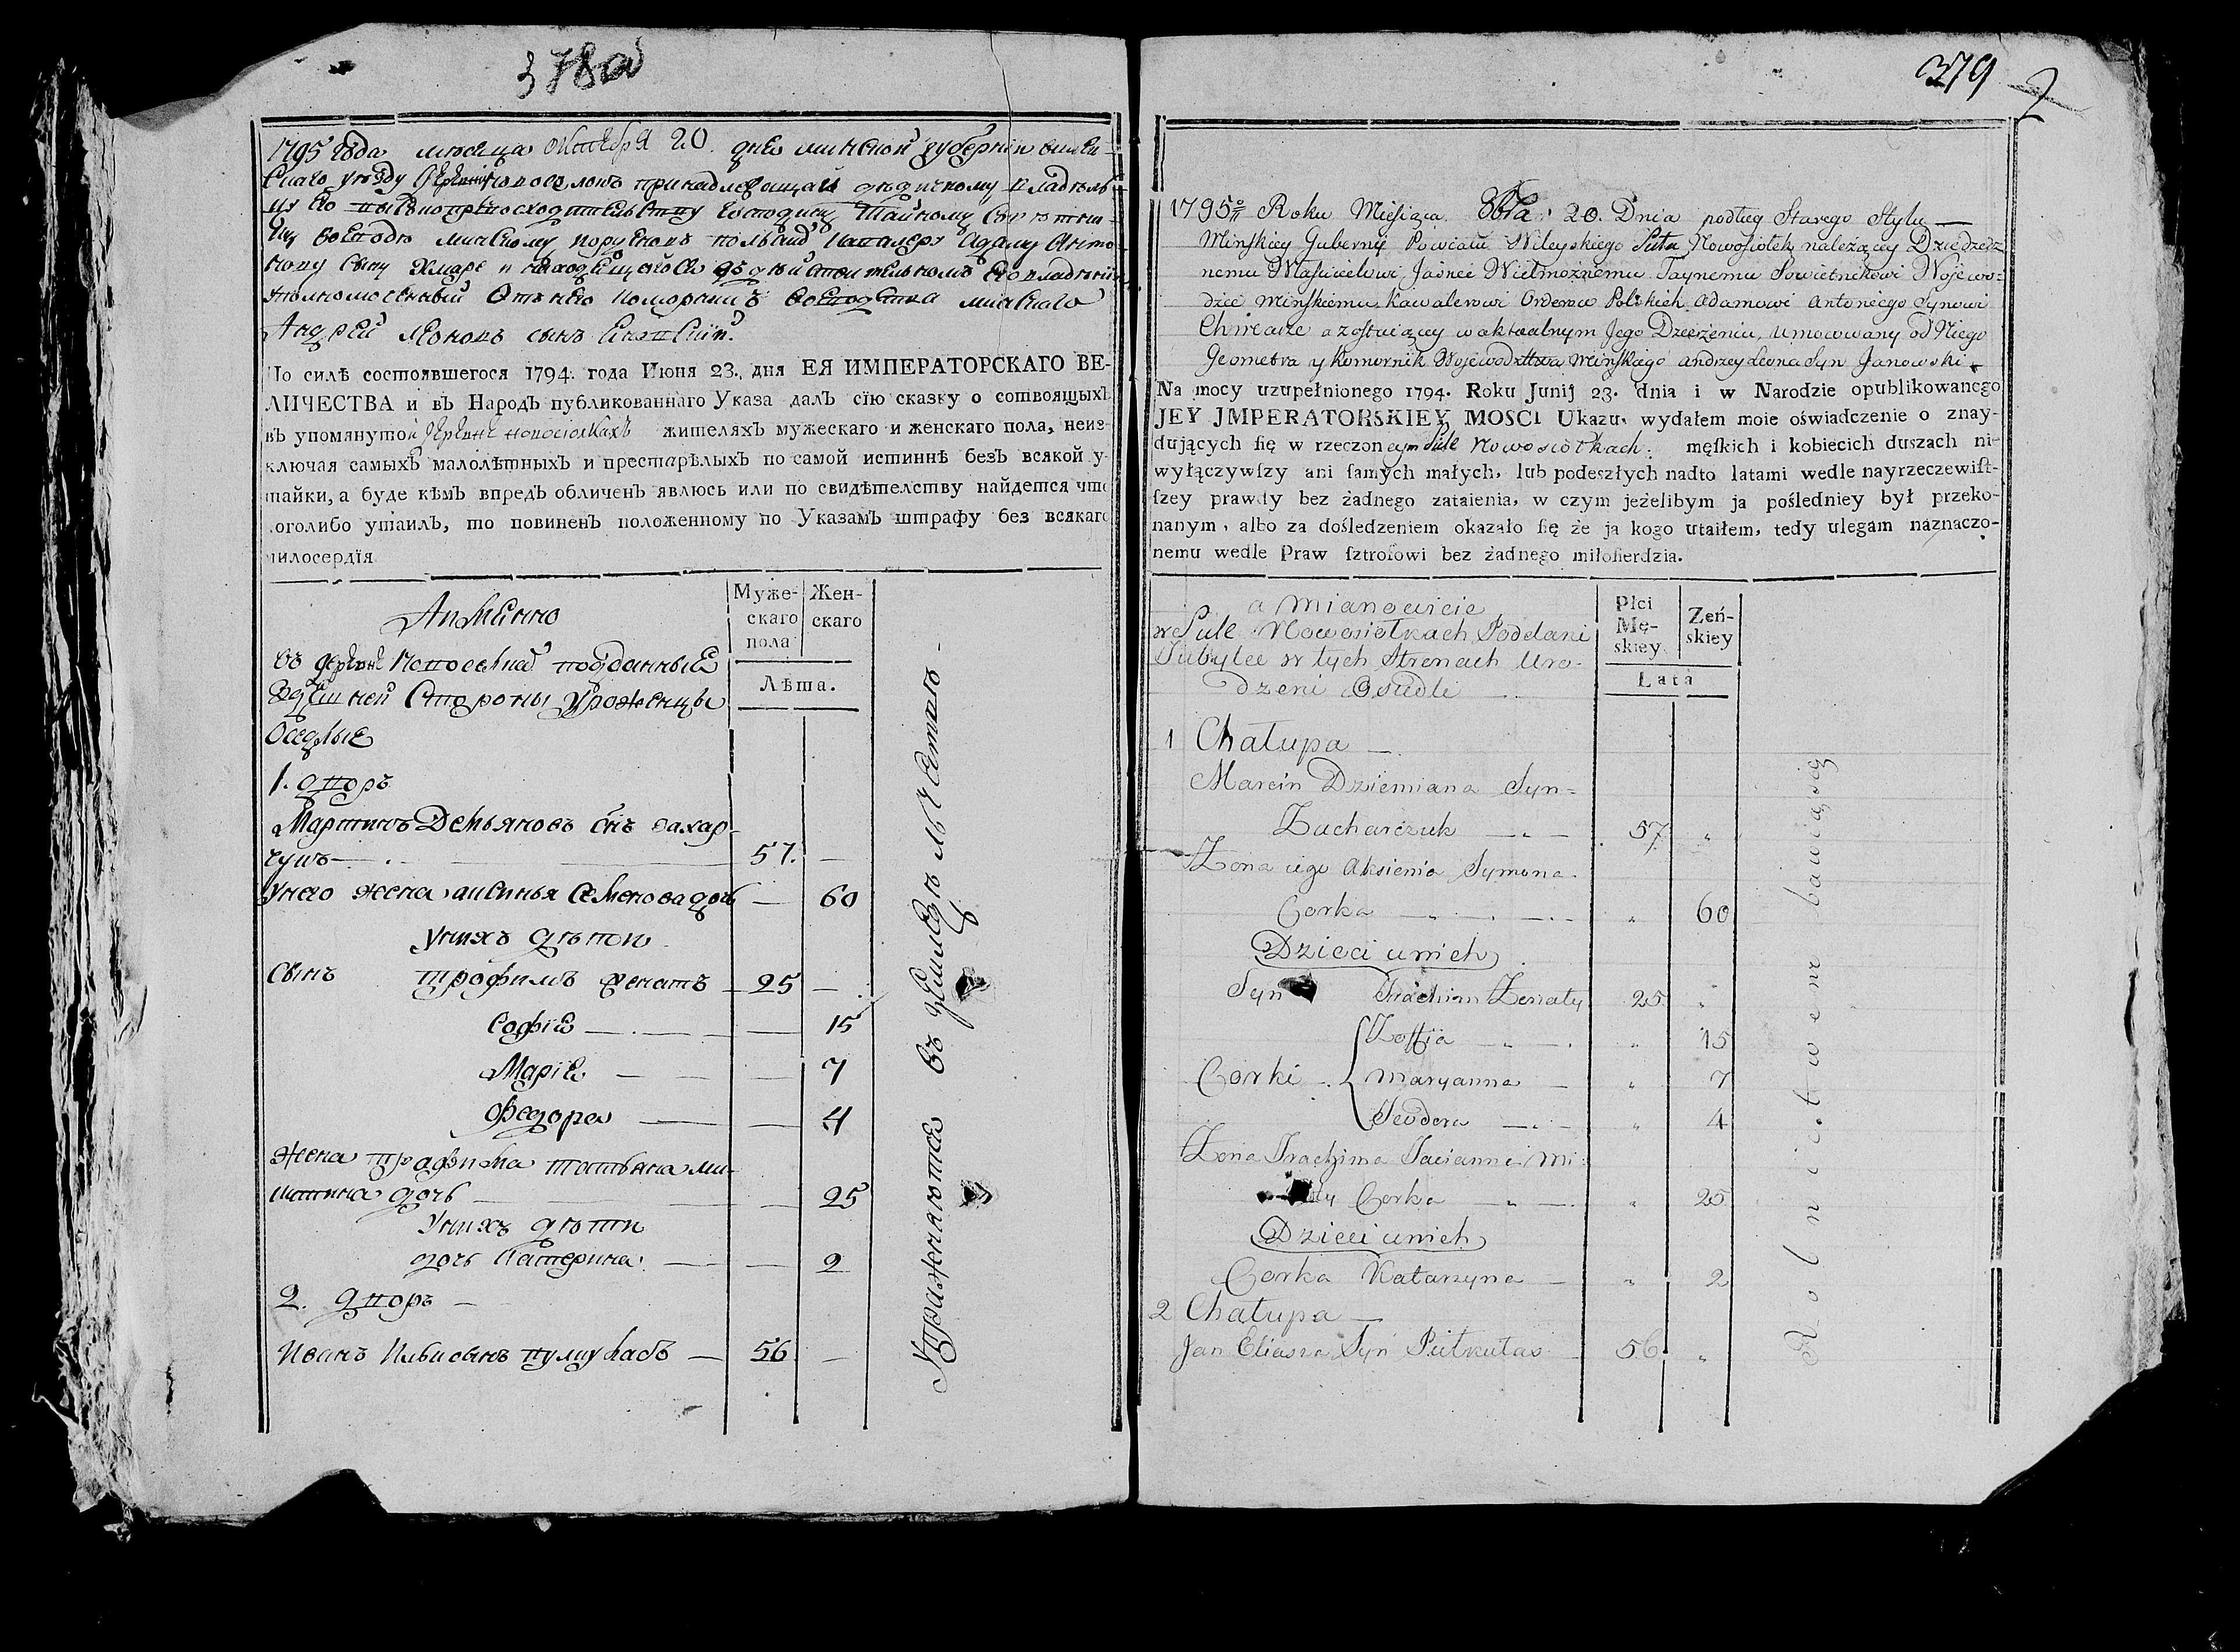 378 об
1795 года месяца октября 20 дня минской губернии вилей-
скаго уезду деревни новоселокъ принадлежащай дедичному владель-
цу Его высокопревосходительству господину Тайному Советни-
ку воеводе минскому орденовъ польскихъ кавалеру Адаму Анто-
нову сыну Хмаре и находящейся въ действительномъ Его владении
уполномоченный Отъ него коморникъ воеводства минскаго
Андрей Леоновъ сынъ Яновский
По силѣ состоявшегося 1794. года Июня 23. дня ЕЯ ИМПЕРАТОРСКАГО ВЕ-
ЛИЧЕСТВА и въ Народъ публикованнаго Указа далъ сїю сказку о состоящихъ
въ упомянутой деревне новоселкахъ жителяхъ мужескаго и женскаго пола, неиз-
ключая самыхъ малолѣтныхъ и престарѣлыхъ по самой истиннѣ безъ всякой у-
тайки, а буде кѣмъ впредъ обличенъ явлюсь или по свидѣтелству найдется что
коголибо утаилъ, то повиненъ положенному по Указамъ штрафу без всякаго
милосердїя.
Муже-
скаго
пола
Жен-
скаго
Лѣта.
Аимянно
въ деревне Новоселкахъ подданные
здешней Стороны Уроженцы
Оседлые
1. дворъ
Мартинъ Демьяновъ снъ захар-
чукъ — 57. —
Унего жена аксинья Семенова дочь — 60
Унихъ дети
Сынъ трофимъ женатъ — 25 —
Софiя — — 15
Марiя — — 7
Федора — — 4
Жена трафима татьяна ми-
китина дочь — — 25
Унихъ дети
дочь Катерина — — 2
2. дворъ —
Иванъ Ильи сынъ пулкутасъ — 56 —
Упражняются въ земледелие
379
1795º Roku Miesiąca 8bra 20. Dnia podług Starego Stylu —
Minskiey Gubernij Powiatu Wileyskiego Siła Nowosiołek należącey Dziedzicz
nemu Właścicielowi Jaśnie Wielmożnemu Taynemu Sowietnikowi Wojewo-
dzie Minskiemu Kawalerowi Orderow Polskich Adamowi Antoniego Synowi
Chmarze a zostaiącey w aktualnym Jego Dzierżeniu, umocowany od Niego
Geometra y Komornik Wojewodztwa Minskiego Andrzey Leona Syn Janowski.
Na mocy uzupełnionego 1794. Roku Junij 23. dnia i w Narodzie opublikowanego
JEY JMPERATORSKIEY MOSCI Ukazu, wydałem moie oświadczenie o znay-
dujących ſię w rzeczoneym Sile Nowosiołkach. męſkich i kobiecich duszach ni-
wyłączywſzy ani ſamych małych, lub podeszłych nadto latami wedle nayrzeczewiſt-
ſzey prawdy bez żadnego zataienia, w czym jeżelibym ja poślednieу był przeko-
nanym, albo za dośledzeniem okazało ſię że ja kogo utaiłem, tedy ulegam naznaczo-
nemu wedle Praw ſztrofowi bez żadnego miłoſierdzia.
Płci
Mę-
skiey
Zeń-
skiey
Lata
a Mianowicie
w Sile Nowosiołkach Poddani
w tych Stronach Uro-
dzeni Osiedli
1 Chałupa —
Marcin Dziemiana Syn-
Zacharczuk — 57 „
Zona iego Aksienia Symona
Corka — „ 60
Dzieci unich
Syn Trachim Zonaty 25 „
Corki Zoffija — „ 15
Maryanna — „ 7
Teodora — „ 4
Zona Trachima Tacianna Mi
Corka — „ 25
Dzieci unich
Corka Katarzyna — „ 2
2 Chałupa —
Jan Eliasza Syn Piłkutas 56 „
Rolnictwem bawią się